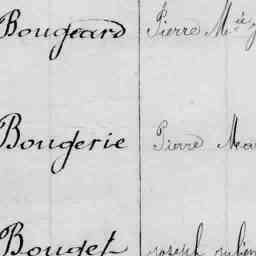 Bougeard Pierre M
Bougerie Pierre
Bouget Joseph Julien